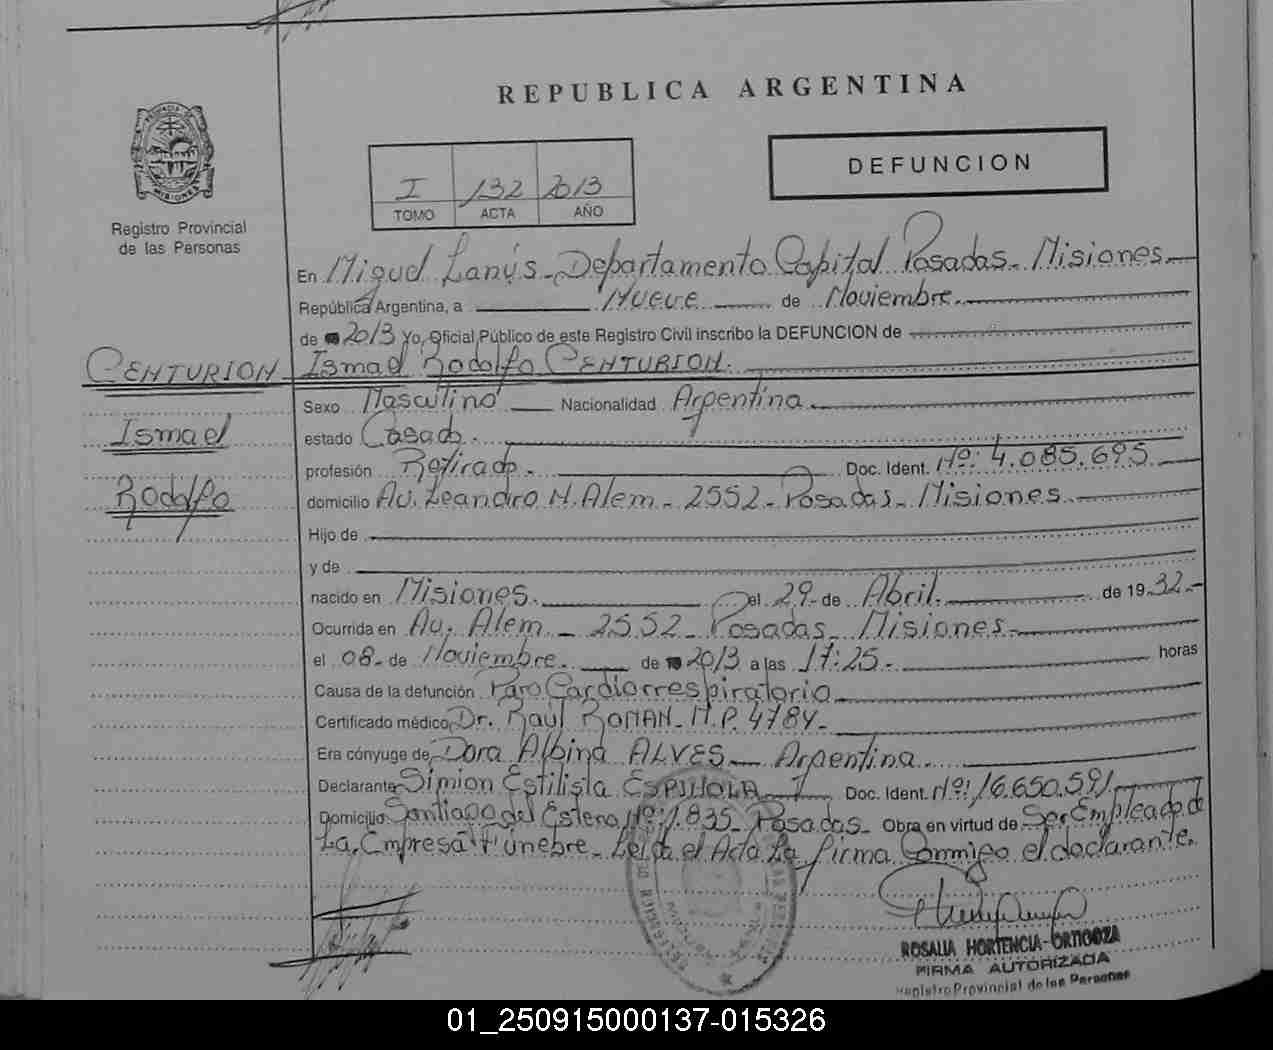 REPUBLICA ARGENTINA
DEFUNCION
I 132 2013
TOMO ACTA AÑO
Registro Provincial
de las Personas
En Miguel Lanús - Departamento Capital Posadas - Misiones
República Argentina, a Nueve de Noviembre
de 2013 Yo, Oficial Público de este Registro Civil inscribo la DEFUNCION de
CENTURION
Ismael
Rodolfo
Ismael Rodolfo CENTURION.
Sexo Masculino Nacionalidad Argentina
estado Casado.
profesión Retirado. Doc. Ident. Nº: 4.085.695
domicilio Av. Leandro N. Alem - 2552 - Posadas - Misiones
Hijo de
y de
nacido en Misiones. el 29 de Abril. de 1932
Ocurrida en Av. Alem - 2552 - Posadas - Misiones
el 08 de Noviembre. de 2013 a las 17:25 horas
Causa de la defunción Paro Cardiorrespiratorio
Certificado médico Dr. Raúl ROMAN - M.P. 4784
Era cónyuge de Dora Albina ALVES - Argentina.
Declarante Simion Estilista ESPINOLA Doc. Ident. Nº: 16.650.591
Domicilio Santiago del Estero Nº: 1.835 - Posadas - Obra en virtud de Ser Empleado de
La Empresa Fúnebre - Leída el Acta La firma Conmigo el declarante.
ROSALIA HORTENCIA ORTIGOZA
FIRMA AUTORIZADA
Registro Provincial de las Personas
01_250915000137-015326